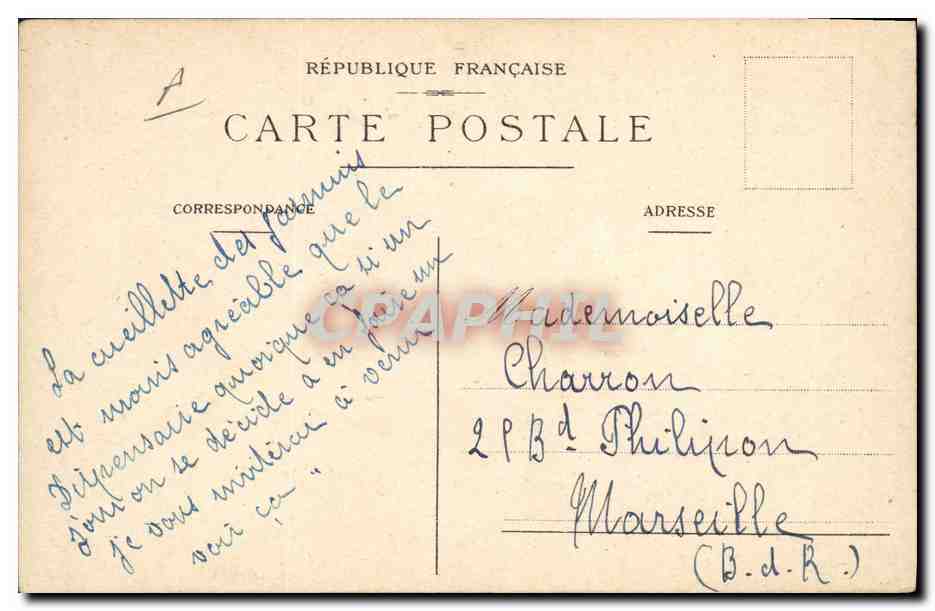 RÉPUBLIQUE FRANÇAISE
CARTE POSTALE
CORRESPONDANCE
La cueillette des Jasmins
est moins agréable que le
Dispensaire quoique ça si un
Jour on se décide à en faire un
je vous inviterai à venir
voir ça"
ADRESSE
Mademoiselle
Charron
Bd. Philipon
Marseille
(B.d.R.)
CPAPHIL